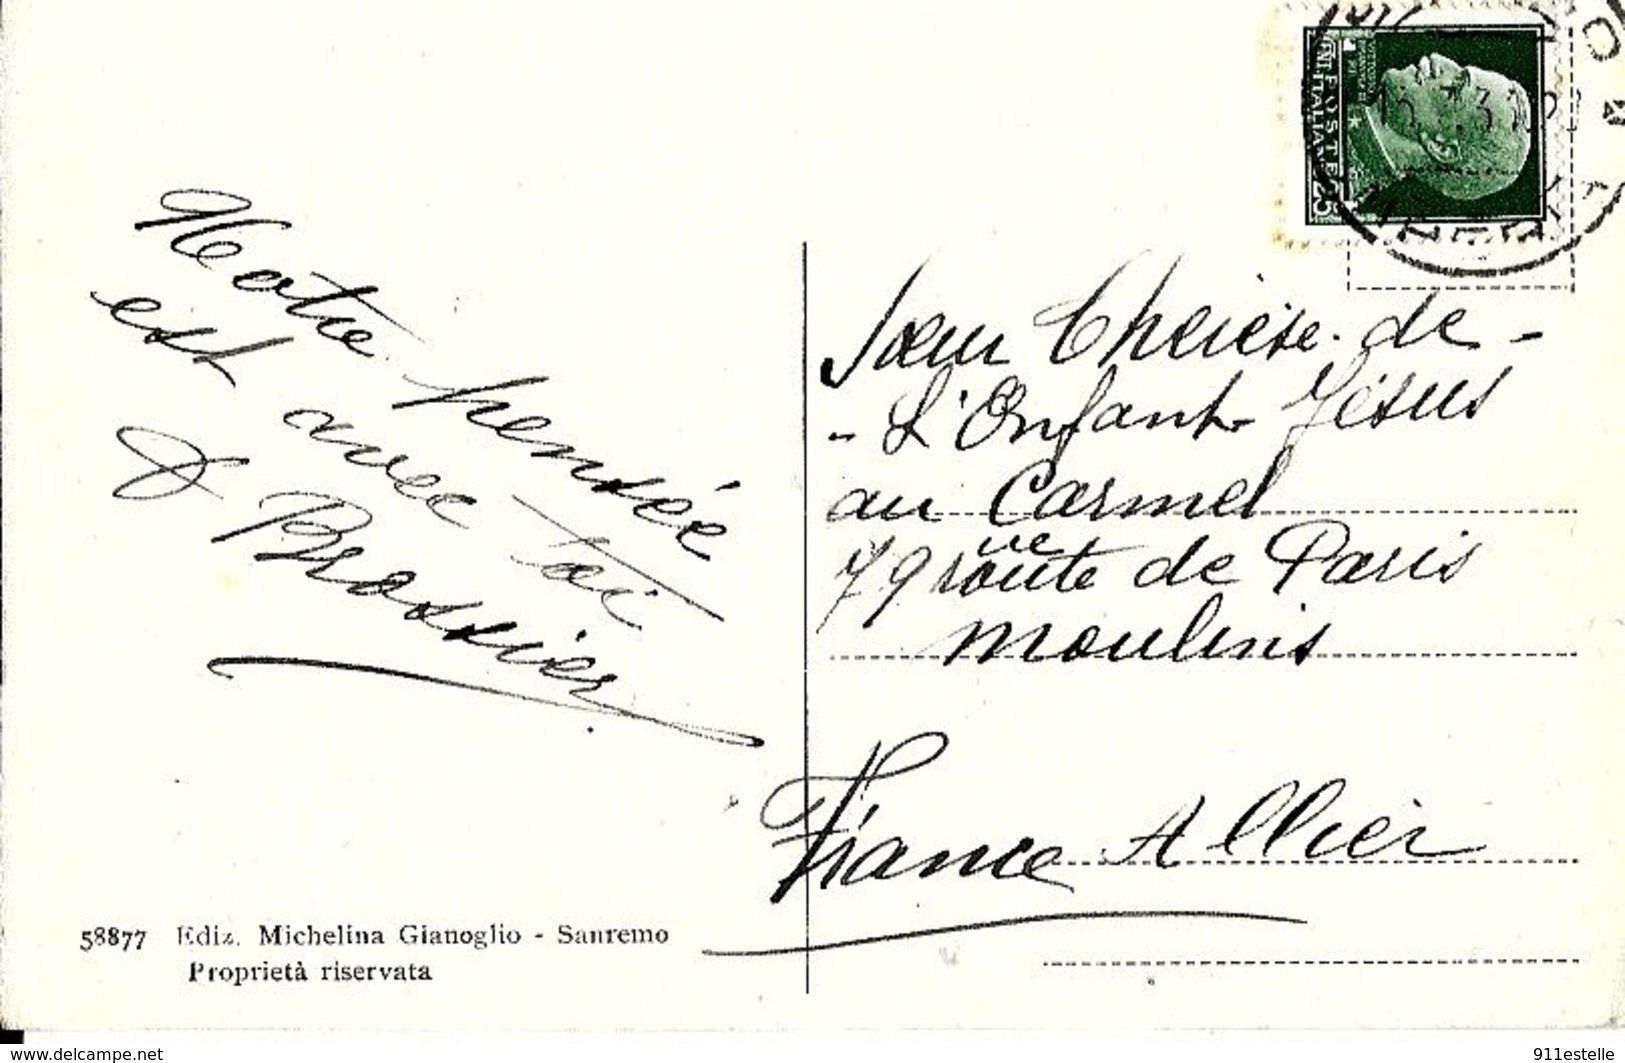 POSTE ITALIANE
25
Notre pensée
est avec toi
J Brossier
Sœur Thérèse-de-
-L'Enfant Jésus
au Carmel
79 route de Paris
Moulins
France Allier
58877 Ediz. Michelina Gianoglio - Sanremo
Proprietà riservata
www.delcampe.net
911estelle